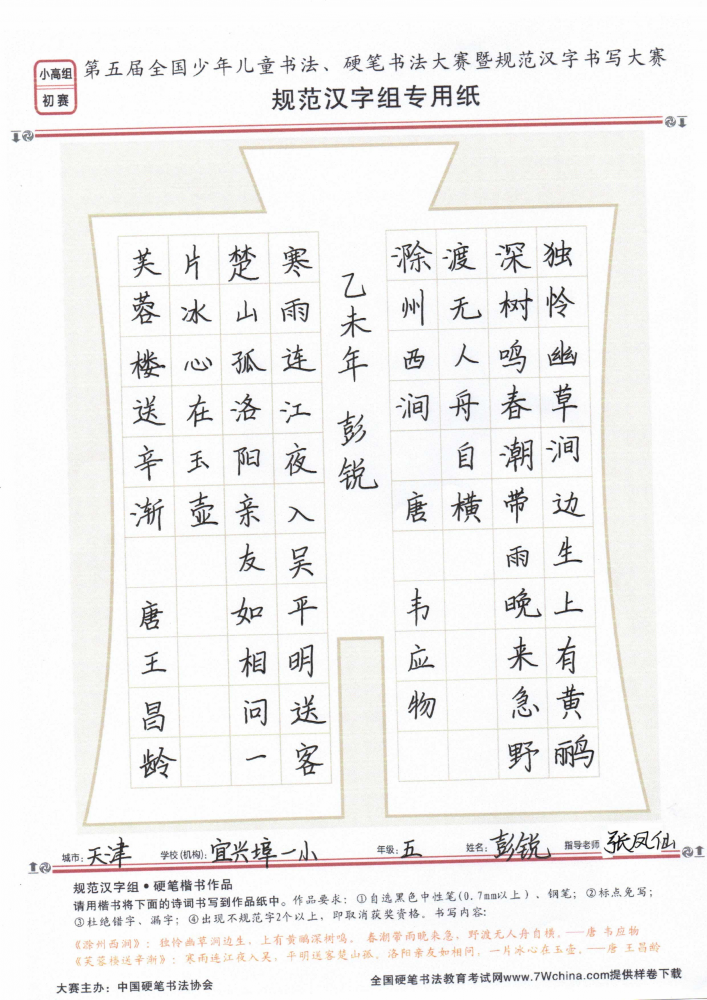 小高组
初赛
第五届全国少年儿童书法、硬笔书法大赛暨规范汉字书写大赛
规范汉字组专用纸
独怜幽草涧边生上有黄鹂
深树鸣春潮带雨晚来急野
渡无人舟自横
滁州西涧 唐 韦应物
乙未年 彭锐
寒雨连江夜入吴平明送客
楚山孤洛阳亲友如相问一
片冰心在玉壶
芙蓉楼送辛渐 唐王昌龄
城市：天津 学校(机构)：宜兴埠一小 年级：五 姓名：彭锐 指导老师 张凤仙
规范汉字组•硬笔楷书作品
请用楷书将下面的诗词书写到作品纸中。作品要求：①自选黑色中性笔(0.7mm以上)、钢笔；②标点免写；
③杜绝错字、漏字；④出现不规范字2个以上，即取消获奖资格。书写内容：
《滁州西涧》：独怜幽草涧边生，上有黄鹂深树鸣。 春潮带雨晚来急，野渡无人舟自横。——唐 韦应物
《芙蓉楼送辛渐》：寒雨连江夜入吴，平明送客楚山孤。洛阳亲友如相问，一片冰心在玉壶。——唐 王昌龄
大赛主办：中国硬笔书法协会 全国硬笔书法教育考试网www.7Wchina.com提供样卷下载